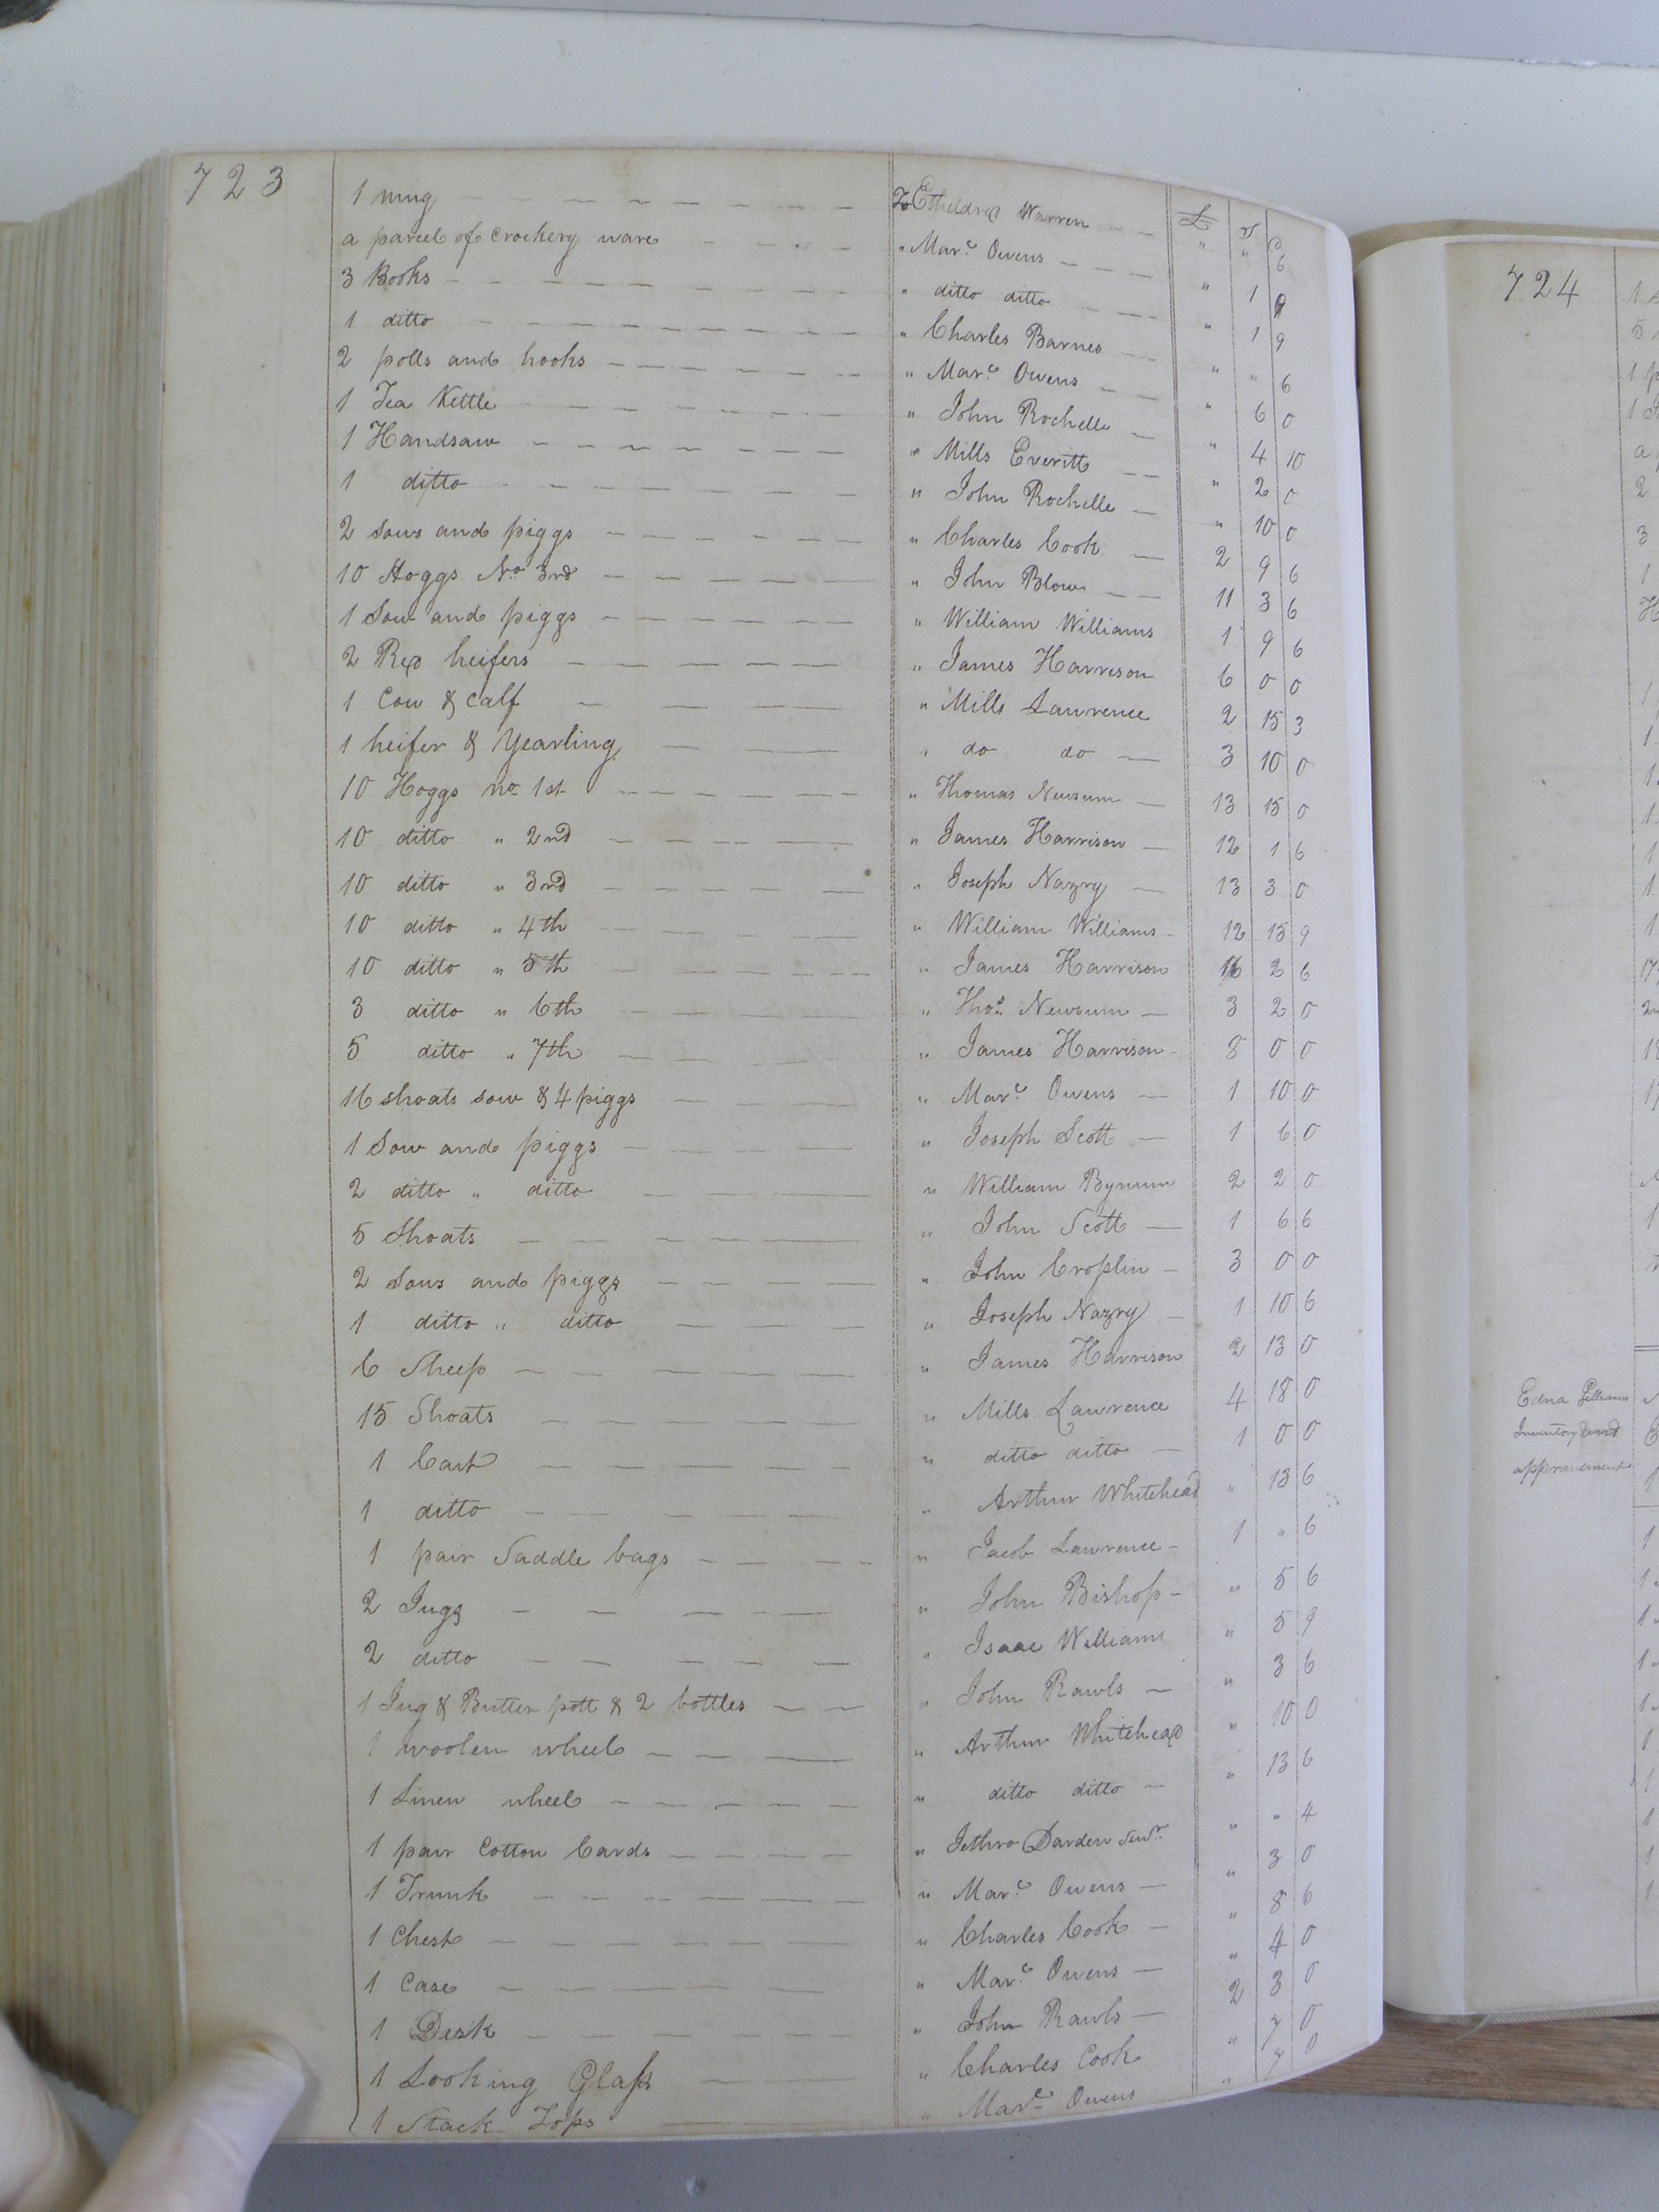 723
£ S d
1 mug To Etheldred Warren " " 6
a parcel of Crockery ware " Mar.t Owens " 1
3 Books " ditto ditto " 1 9
1 ditto " Charles Barnes " " 6
2 potts and hooks " Mar.t Owens " 6 0
1 Tea Kettle " John Rochelle " 4 10
1 Handsaw " Mills Everitt " 2 0
1 ditto " John Rochelle " 10 0
2 Sows and piggs " Charles Cook 2 9 6
10 Hoggs No 3rd " John Blow 11 3 6
1 Sow and piggs " William Williams 1 9 6
2 Red heifers " James Harrison 6 0 0
1 Cow & Calf " Mills Lawrence 2 15 3
1 heifer & Yearling " do do 3 10 0
10 Hoggs no 1st " Thomas Newsum 13 15 0
10 ditto " 2nd " James Harrison 12 1 6
10 ditto " 3rd " Joseph Nazry 13 3 0
10 ditto " 4th " William Williams 12 15 9
10 ditto " 5th " James Harrison 2 6
3 ditto " 6th " Thos Newsum 3 2 0
5 ditto " 7th " James Harrison 8 0 0
16 shoats sow & 4 piggs " Mar.t Owens 1 10 0
1 Sow and piggs " Joseph Scott 1 6 0
2 ditto " ditto " William Bynum 2 2 0
5 Shoats " John Scott 1 6 6
2 Sows and piggs " John 3 0 0
1 ditto " ditto " Joseph Nazry 1 10 6
6 Sheep " James Harrison 2 13 0
15 Shoats " Mills Lawrence 4 18 0
1 Cart " ditto ditto 1 0 0
1 ditto " Arthur Whitehead " 13 6
1 pair Saddle bags " Jacob Lawrence 1 " 6
2 Jugs " John Bishop " 5 6
2 ditto " Isaac Williams " 5 9
1 Jug & Butter pott & 2 bottles " John Rawls " 3 6
1 woolen wheel " Arthur Whitehead " 10 0
1 Linen wheel " ditto ditto " 13 6
1 pair Cotton Cards " Jethro Darden Senr " " 4
1 Trunk " Mar.t Owens " 3 0
1 Chest " Charles Cook " 8 6
1 Case " Mar.t Owens " 4 0
1 Desk " John Rawls 2 3 0
1 Looking Glass " Charles Cook " 7 0
1 Stack Tops " Mar.t Owens " 7 0
724
Edna
Inventory and
appraisement